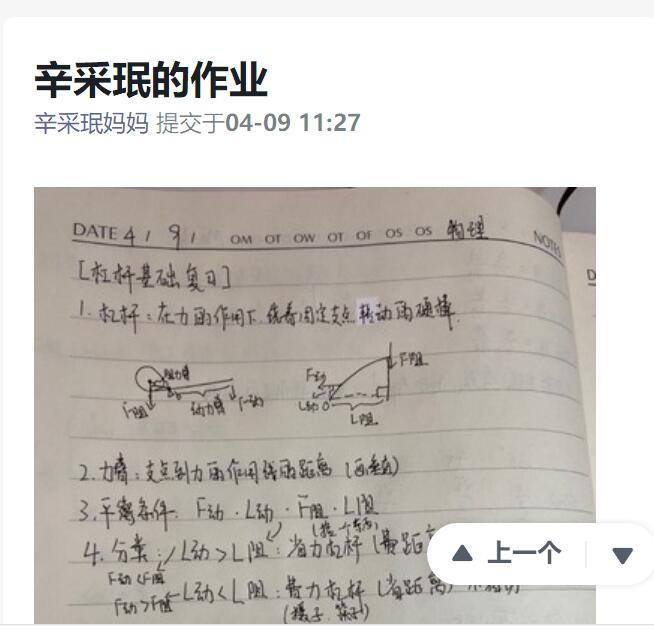 辛采珉的作业
辛采珉妈妈 提交于04-09 11:27
DATE 4 / 9 / OM OT OW OT OF OS OS 物理 NOTES
[杠杆基础复习]
1. 杠杆：在力的作用下.绕着固定支点转动的硬棒.
阻力臂
F阻 动力臂 F动
F动 F阻
L动 O
L阻
2.力臂：支点到力的作用线的距离
3.平衡条件. F动·L动·F阻·L阻
4.分类：L动>L阻：省力杠杆
F动<F阻
F动>F阻 L动<L阻：费力杠杆(省距离)
(镊子.筷子)
上一个